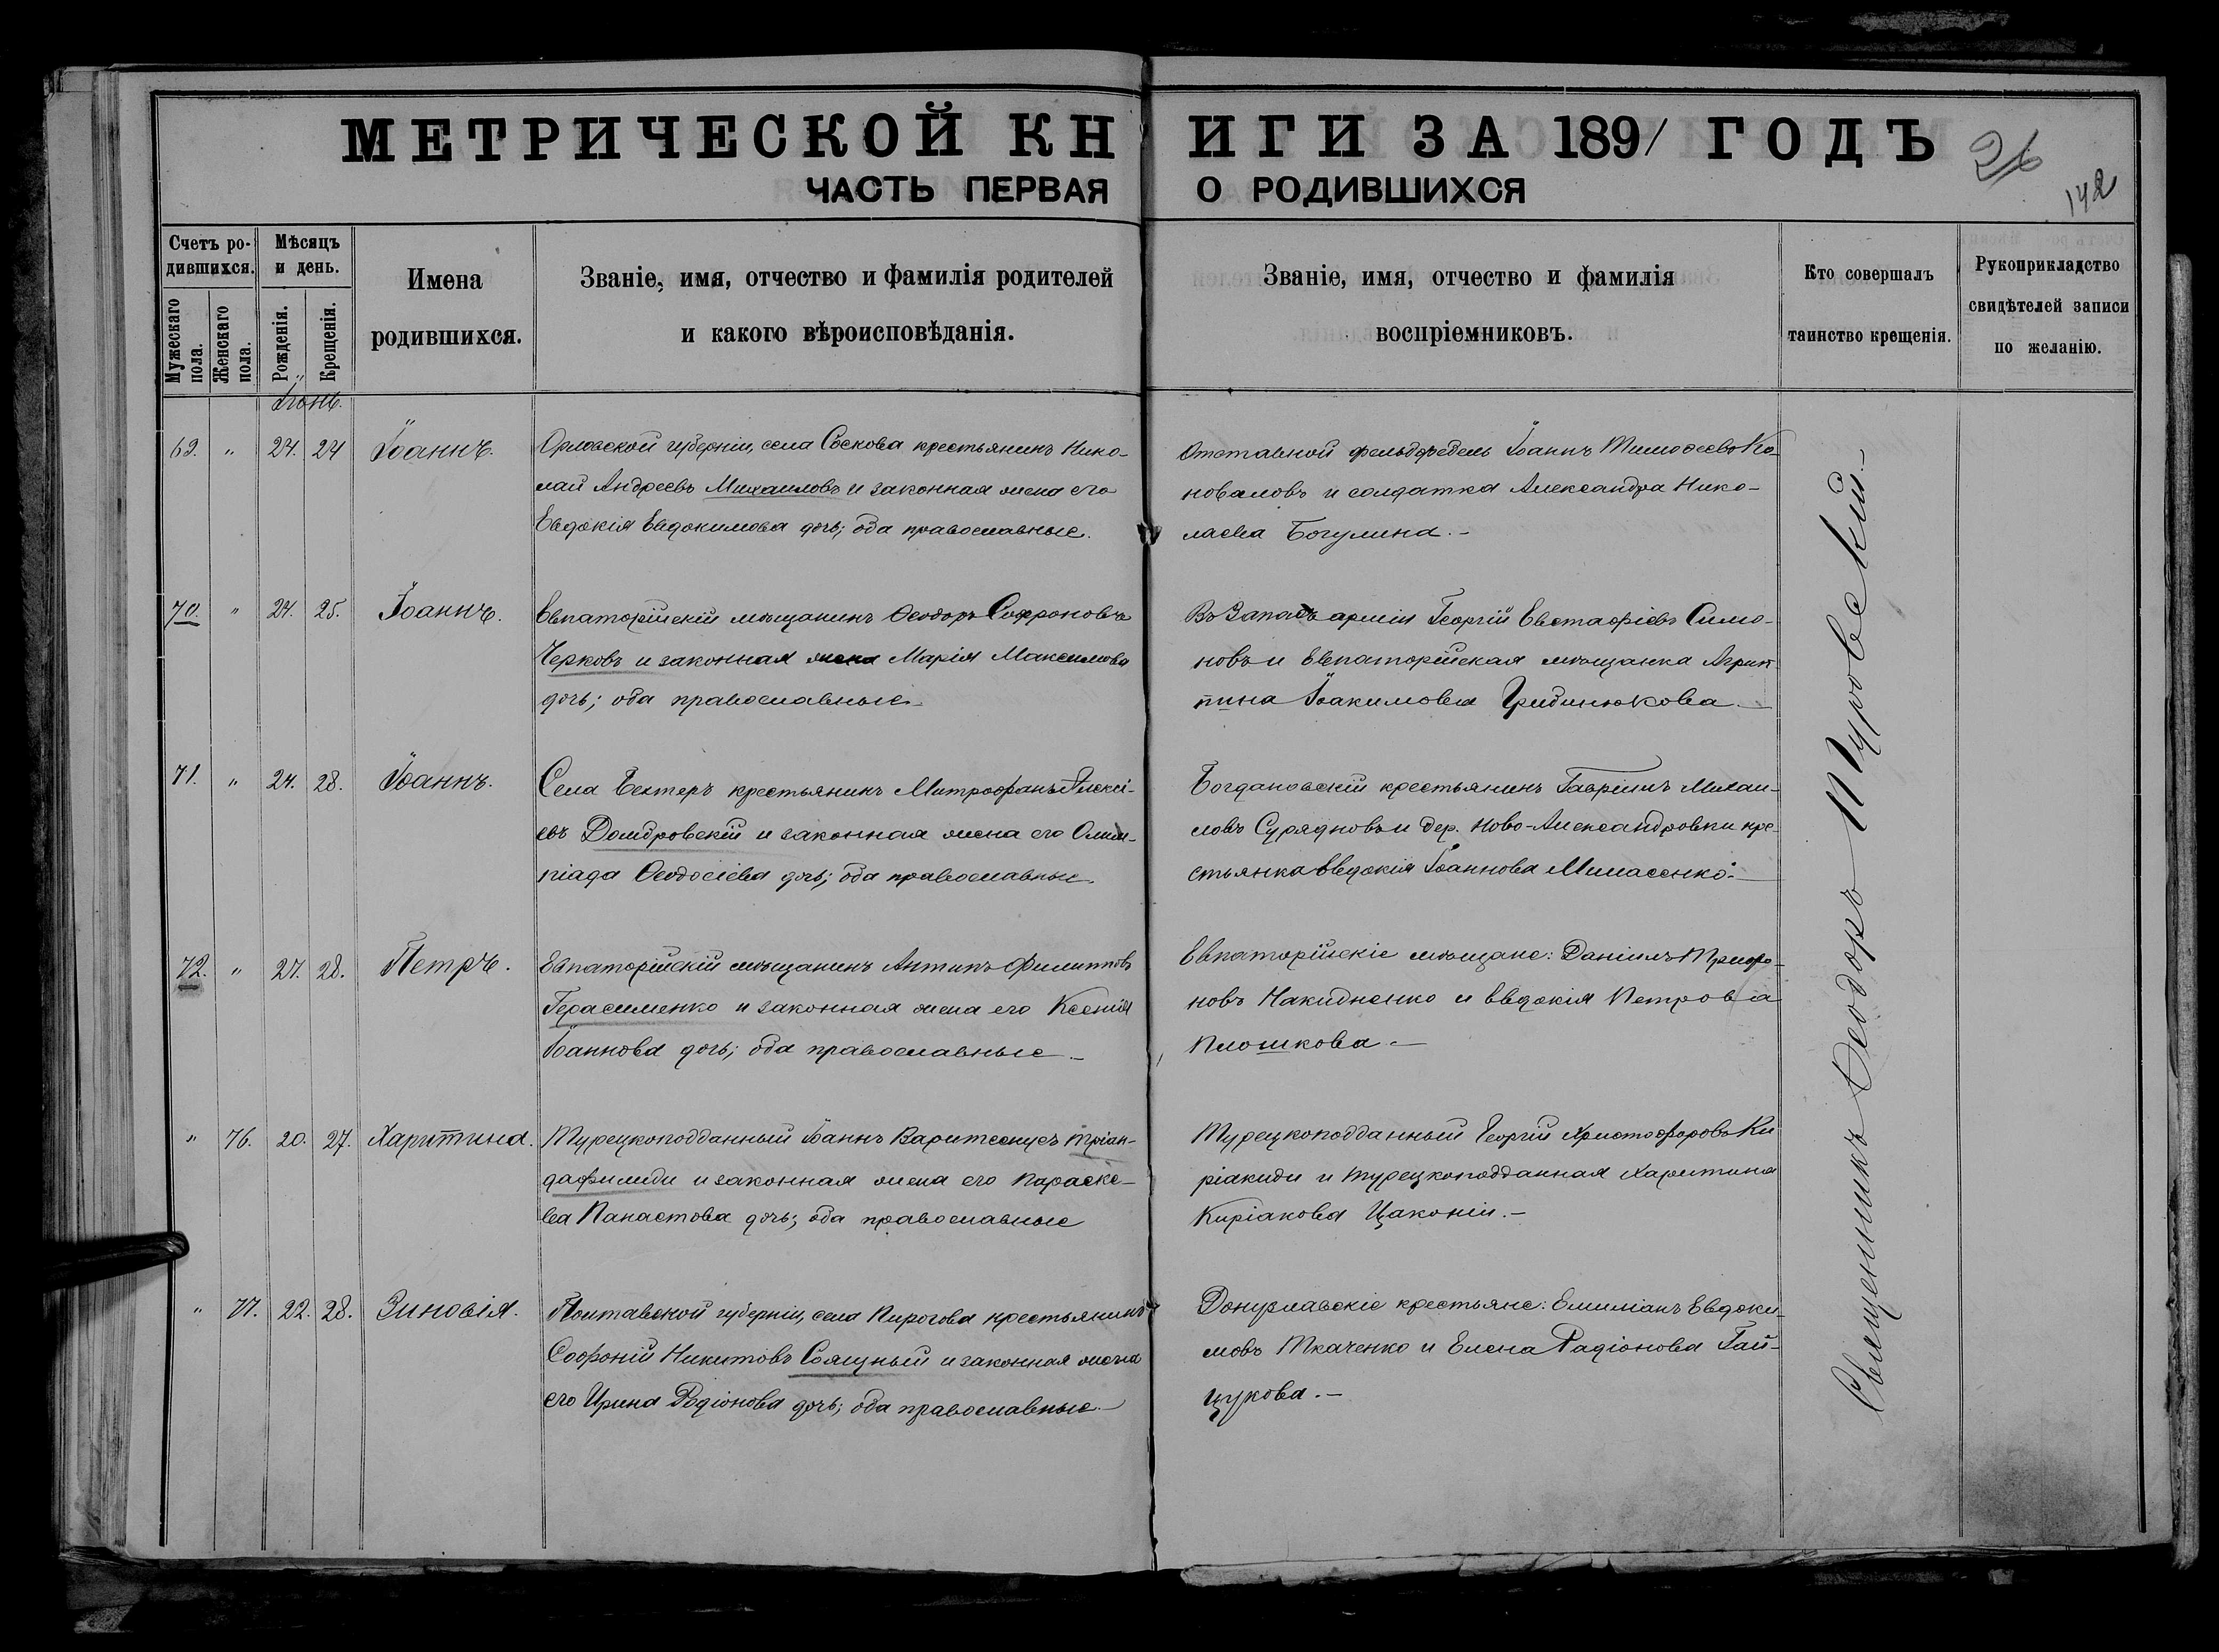 МЕТРИЧЕСКОЙ КНИГИ ЗА 1891 ГОДЪ
26
142
ЧАСТЬ ПЕРВАЯ О РОДИВШИХСЯ
Счетъ ро-
дившихся.
Мужескаго пола.
Женскаго пола.
Мѣсяцъ
и день.
Рожденія.
Крещенія.
Имена
родившихся.
Званіе, имя, отчество и фамилія родителей
и какого вѣроисповѣданія.
Званіе, имя, отчество и фамилія
воспріемниковъ.
Кто совершалъ
таинство крещенія.
Рукоприкладство
свидѣтелей записи
по желанію.
Іюнь.
69. " 24. 24 Іоаннъ.
Орловской губерніи, села Соскова крестьянинъ Нико-
лай Андреевъ Михаиловъ и законная жена его
Евдокія Евдокимова дочь; оба православные.
Отставной фельдфебель Іоаннъ Тимоѳеевъ Ко-
новаловъ и солдатка Александра Нико-
лаева Богулина.-
70. " 24. 25. Іоаннъ.
Евпаторійскій мѣщанинъ Ѳеодоръ Софроновъ
Черковъ и законная жена Марія Максимова
дочь; оба православные.
Въ Запасѣ арміи Георгій Евстафіевъ Симо-
новъ и Евпаторійская мѣщанка Агрип-
пина Іоакимова Гридинюкова.-
71. " 24. 28. Іоаннъ.
Села Бехтеръ крестьянинъ Митрофанъ Алексі-
евъ Домбровскій и законная жена его Олим-
піада Ѳеодосіева дочь; оба православные.
Богдановскій крестьянинъ Гавріилъ Михаи-
ловъ и дер. Ново-Александровки кре-
стьянка Евдокія Іоаннова
72. " 27. 28. Петръ.
Евпаторійскій мѣщанинъ Антипъ Филипповъ
Герасименко и законная жена его Ксенія
Іоаннова дочь; оба православные.-
Евпаторійскіе мѣщане: Даніилъ Трифо-
новъ Накидненко и Евдокія Петрова
Плошкова.-
" 76. 20. 27. Харитина.
Турецкоподданный Іоаннъ Тріан-
дафилиди и законная жена его Параске-
ва Панаетова дочь; оба православные
Турецкоподданный Георгій Христофоровъ Ки-
ріакиди и турецкоподданная Харитина
Киріакова Цаконіи.-
" 77. 22. 28. Зиновія.
Полтавской губерніи, села Пирогова крестьянинъ
Софроній Никитовъ и законная жена
его Ирина Родіонова дочь; оба православные.-
Донузлавскіе крестьяне: Емиліанъ Евдоки-
мовъ Ткаченко и Елена Радіонова Гай-
цукова.-
Священникъ Ѳеодоръ Туровскій.-